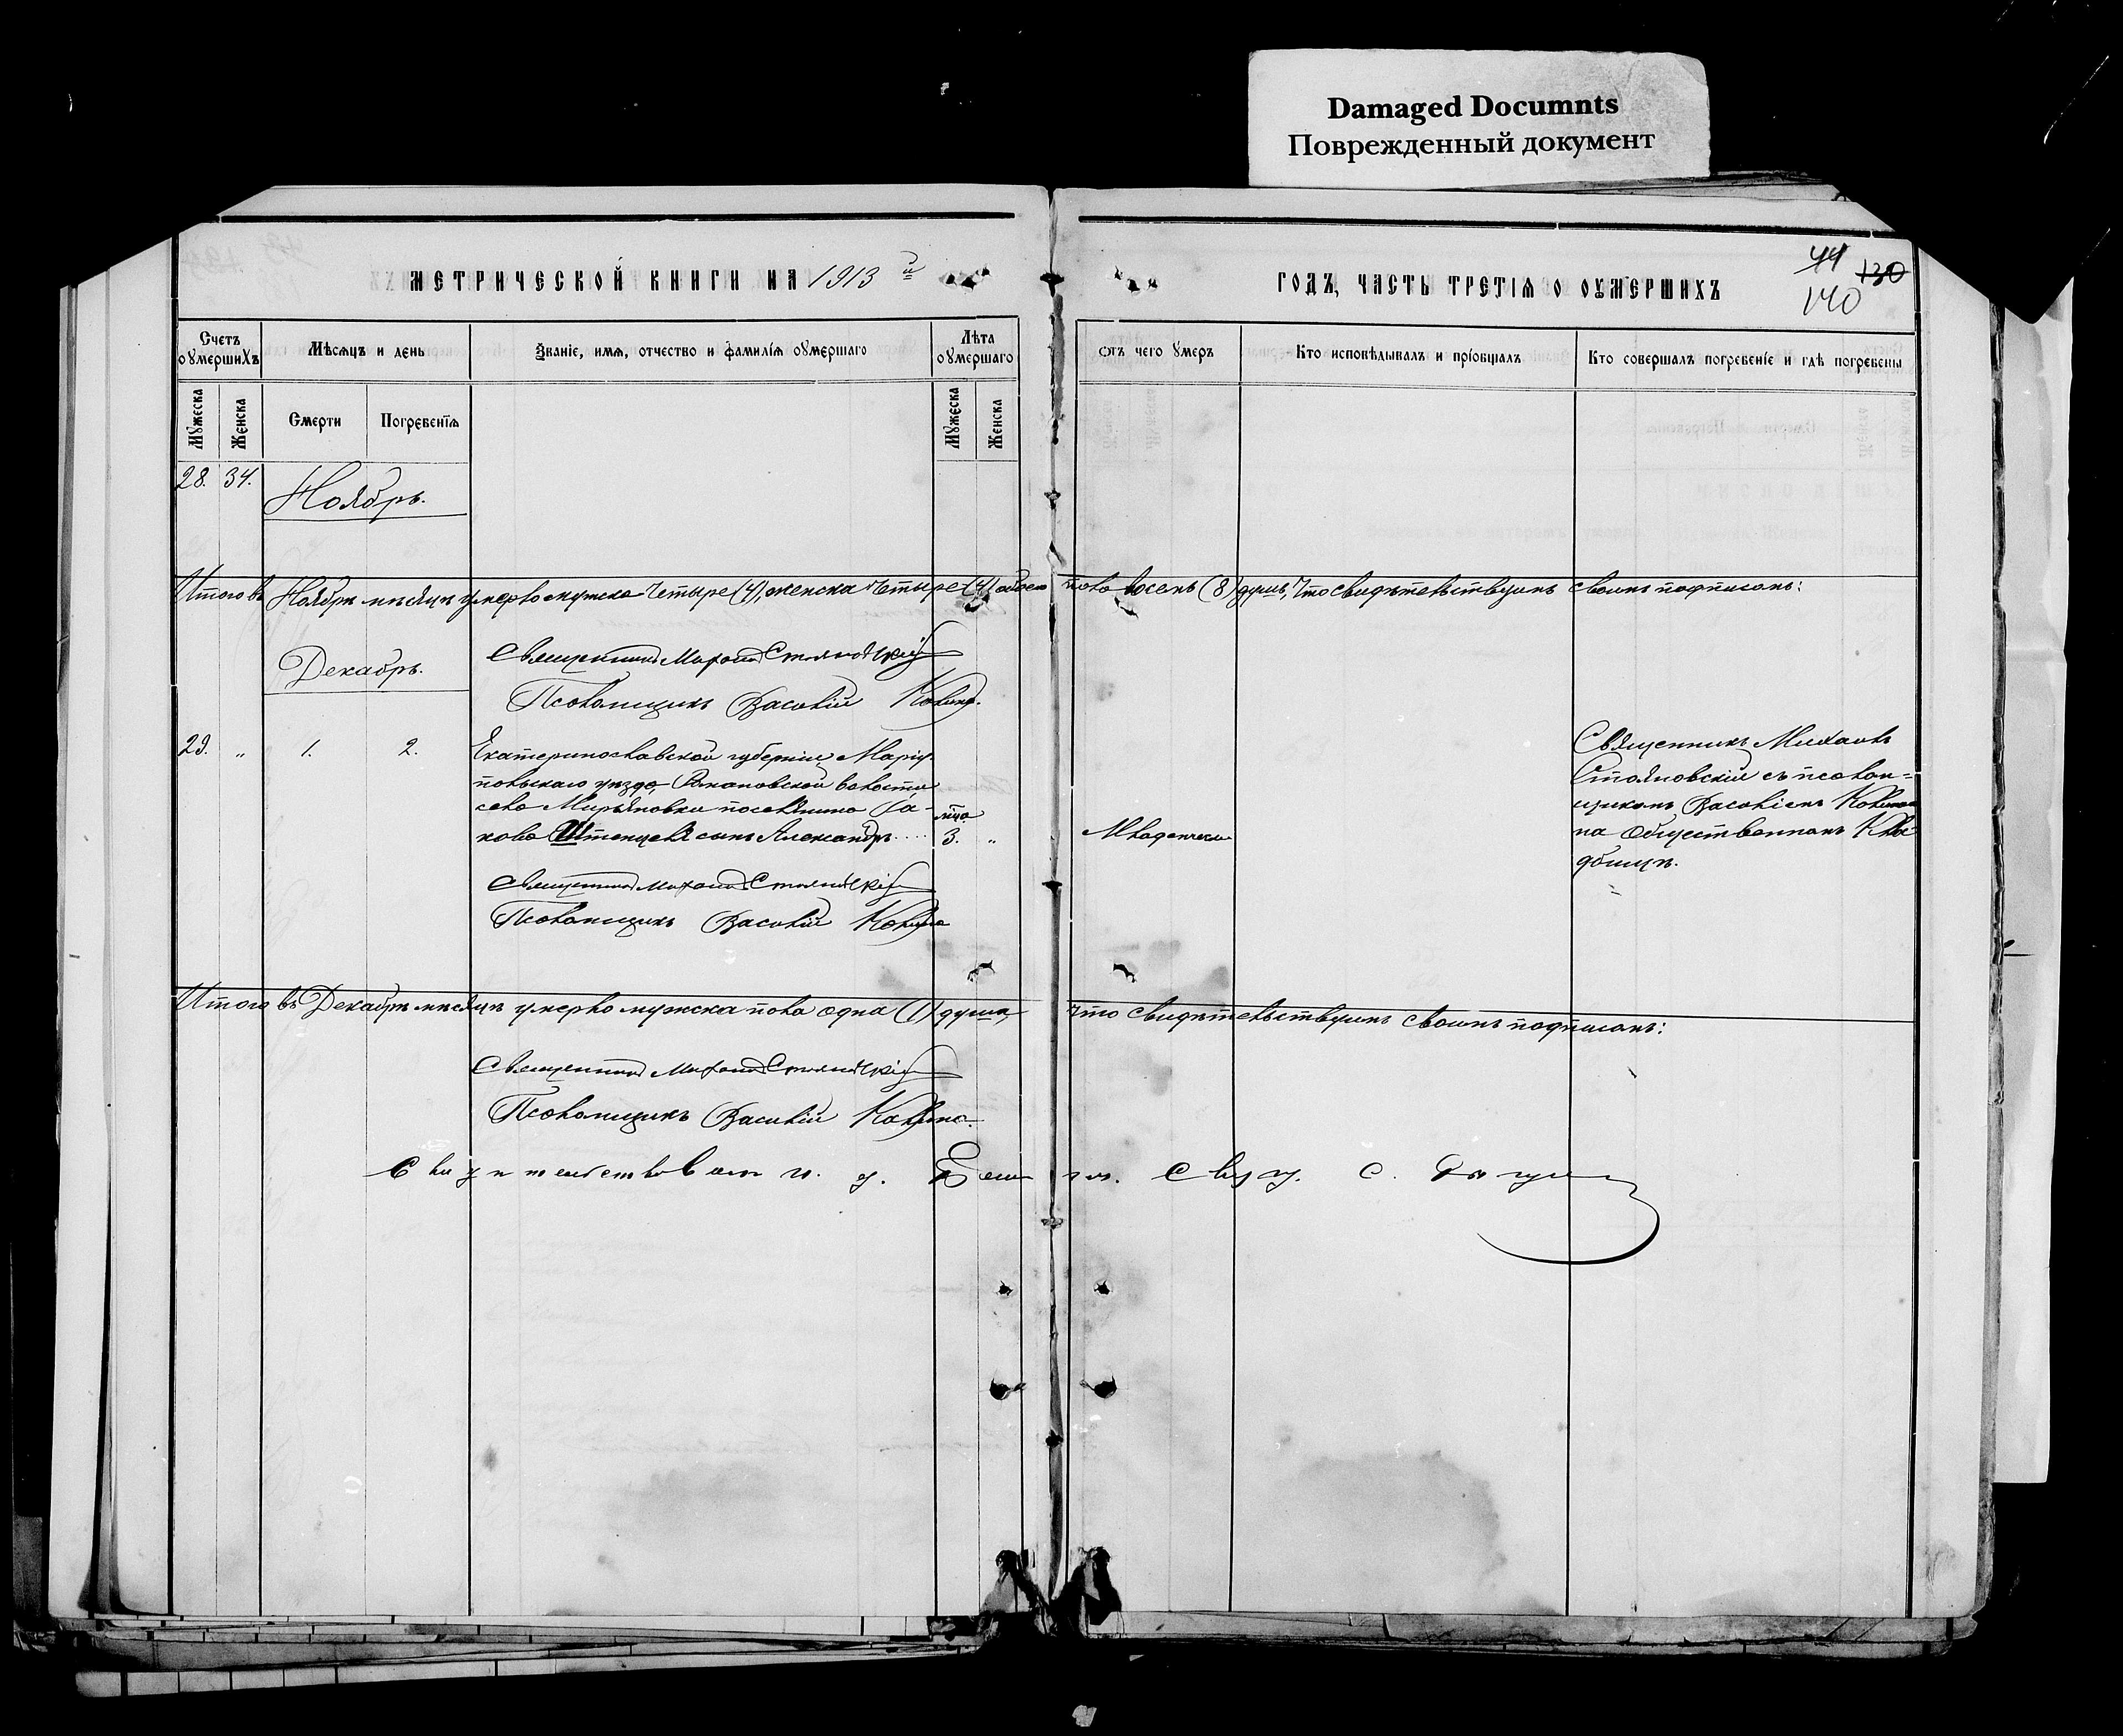 Damaged Documnts
Поврежденный документ
МЕТРИЧЕСКОЙ КНИГИ НА 1913 й
ГОДЪ, ЧАСТЬ ТРЕТІЯ О ОУМЕРШИХЪ
44 130
140
Счетъ оумершихъ
Мѣсяцъ и день
Званіе, имя, отчество и фамилія оумершаго
Лѣта оумершаго
отъ чего умеръ
Кто исповѣдывалъ и пріобщалъ
Кто совершалъ погребеніе и гдѣ погребены
Мужеска
Женска
Смерти
Погребенія
Мужеска
Женска
28. 34.
Ноябрь.
Итого въ Ноябрѣ мѣсяцѣ умерло мужска четыре (4), женска четыре (4) обоего пола восемь (8) душъ, Что свидѣтельствуемъ своимъ подписомъ:
Декабрь.
Священникъ Михаилъ Стояновскій
Псаломщикъ Василій
29. „ 1. 2.
Екатеринославской губерніи Маріу-
польскаго уѣзда, волости
села Марьяновки поселянина Яа-
кова сынъ Александръ
мца.
3. „
Младенческой
Священникъ Михаилъ
Стояновскій съ псалом=
щикомъ Василіемъ
на Общественномъ Клад-
бищѣ.
Священникъ Михаилъ Стояновскій
Псаломщикъ Василій
Итого въ Декабрѣ мѣсяцѣ умерло мужска пола одна (1) душа, что свидѣтельствуемъ своимъ подписомъ:
Священникъ Михаилъ Стояновскій
Псаломщикъ Василій
Свидѣтельствовалъ и. д. Свящ. С.